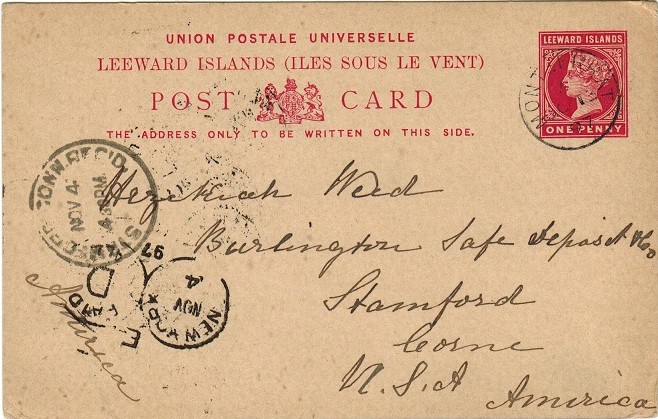 UNION POSTALE UNIVERSELLE
LEEWARD ISLANDS (ILES SOUS LE VENT)
POST CARD
THE ADDRESS ONLY TO BE WRITTEN ON THIS SIDE.
LEEWARD ISLANDS
ONE PENNY
CONN. REC'D
NOV 4
Hezekiah Weed
Burlington Safe Deposit & Co
Stamford
Conne
U.S.A America
America
NEW YORK
NOV
4
97
PAID
D